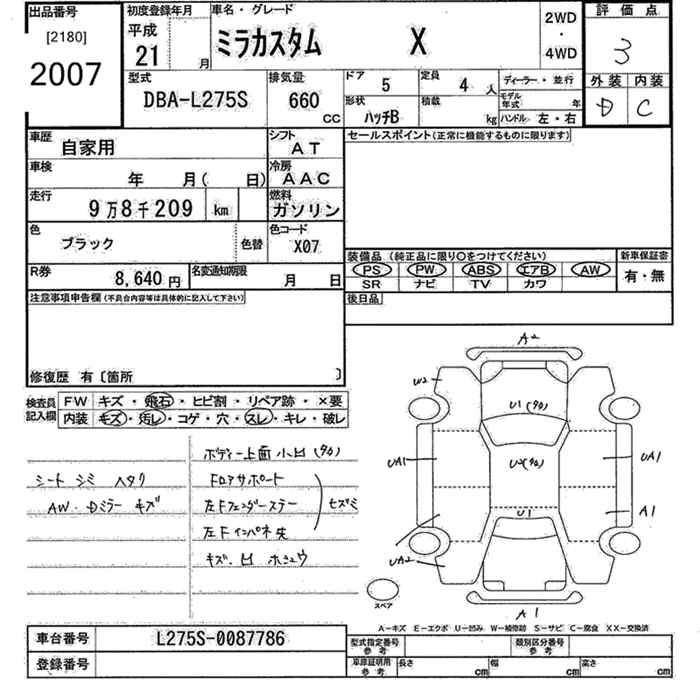 出品番号
[2180]
2007
初度登録年月
平成
21
月
車名・グレード
ミラカスタム X
2WD
・
4WD
評価点
3
外装 内装
D C
型式
DBA-L275S
排気量
660
CC
ドア
5
定員
4 人
ディーラー・並行
形状
ハッチB
積載
kg
モデル
年式
年
ハンドル 左・右
車歴
自家用
シフト
AT
車検
年 月( 日)
冷房
AAC
走行
9万8千209 km
燃料
ガソリン
色
ブラック
色替
色コード
X07
R券
8,640 円
名変通知期限
月 日
セールスポイント(正常に機能するものに限ります)
装備品(純正品に限り○をつけてください)
新車保証書
PS PW ABS エアB AW
SR ナビ TV カワ
有・無
後日品
注意事項申告欄(不具合内容等は具体的に記入して下さい)
修復歴 有〔箇所 〕
検査員
記入欄
FW キズ・飛石・ヒビ割・リペア跡・×要
内装 キズ・汚レ・コゲ・穴・スレ・キレ・破レ
シート シミ ヘタリ
AW・Dミラー キズ
ボディー上面 小凹(タタ)
Fロアサポート
左Fフェンダーステー
左Fインパネ 央
キズ・凹 ホシュウ
A2
W2
U1(タタ)
UA1
U2(タタ)
UA1
U1
A1
UA2
A1
スペア
A-キズ E-エクボ U-凹み W-補修跡 S-サビ C-腐食 XX-交換済
車台番号
L275S-0087786
登録番号
型式指定番号
参考
類別区分番号
参考
車庫証明用
参考
長さ cm
幅 cm
高さ cm